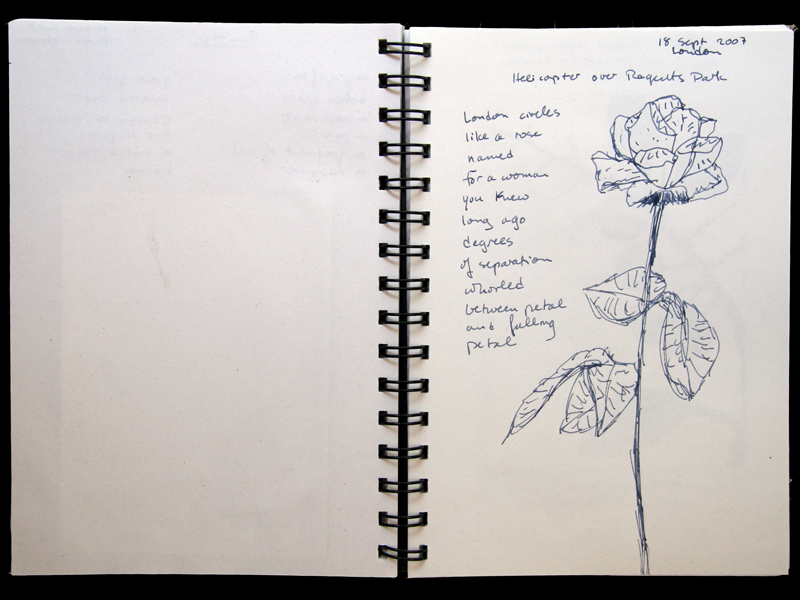 18 Sept 2007
London
Helicopter over Regents Park
London circles
like a rose
named
for a woman
you knew
long ago
degrees
of separation
whorled
between petal
and falling
petal